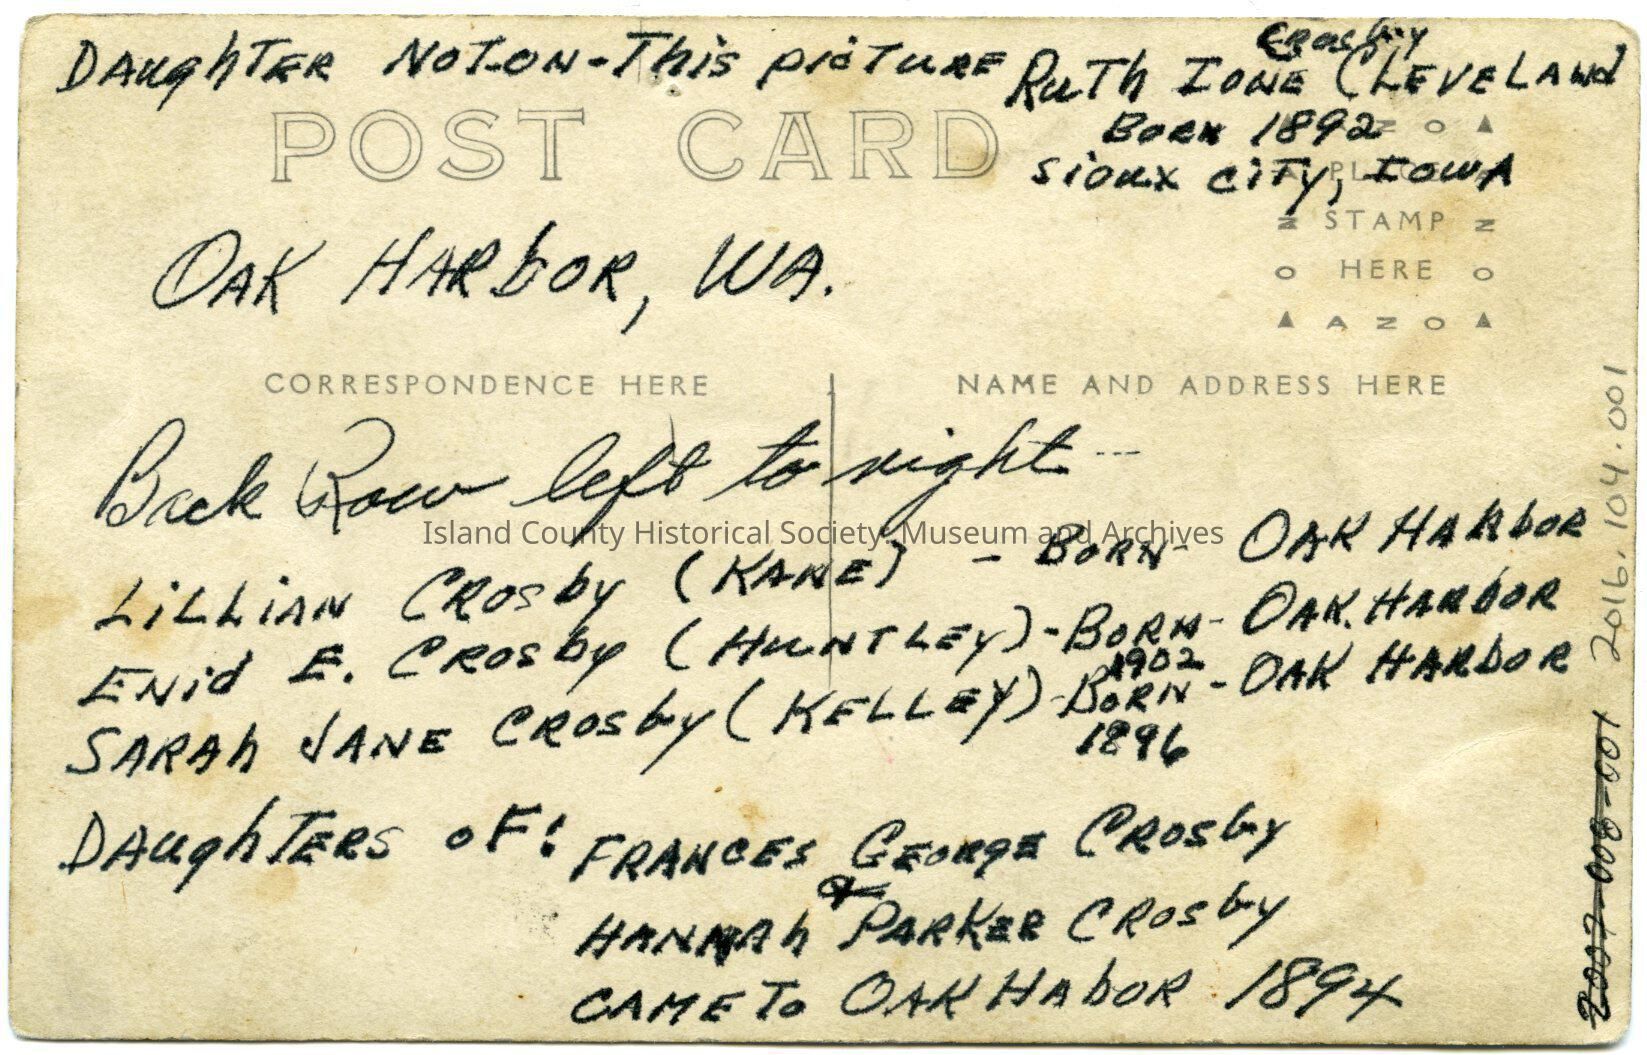 DAughTER NOT-ON-This picTURE RuTh IONE Crosby CLEVELANd
BORN 1892
Sioux CiTy, IowA
POST CARD
AZO
PLACE
STAMP
HERE
AZO
OAK HARbOR, WA.
CORRESPONDENCE HERE
NAME AND ADDRESS HERE
Back Row left to right ---
Island County Historical Society, Museum and Archives
LiLLiAN CROSby (KANE) - BORN - OAK HARbOR
ENid E. CROSby (HUNTLEy) - BORN - OAK HARbOR
1902
SARAh JANE CROSby (KELLEy) - BORN - OAK HARbOR
1896
DAughTERS oF: FRANCES GEORGE CROSby
&
HANNAh PARKER CROSby
CAME To OAK HAbOR 1894
2016.104.001
2007-008-001